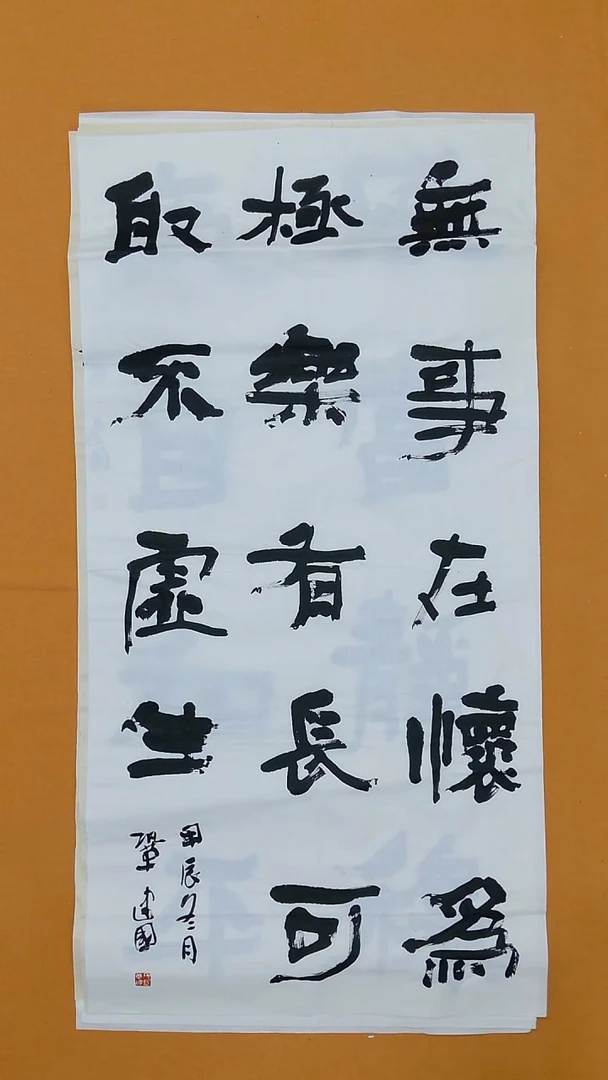 無事在懷為
極樂有長可
取不虛生
甲辰冬月
鞏建國